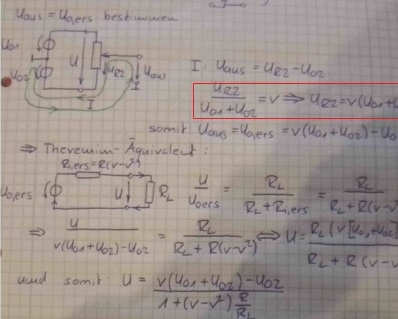 Uaus = U0,ers bestimmen
U01
U02
U
UR2
Uaus
I
I: Uaus = UR2 - U02
UR2 / (U01 + U02) = v ⟹ UR2 = v(U01 + U
somit: Uaus = U0,ers = v(U01 + U02) - U0
⟹ Thevenin-Äquivalent:
Ri,ers = R(v-v²)
U0,ers
U
RL
U / U0ers = RL / (RL + Ri,ers) = RL / (RL + R(v-v²
⟹ U / (v(U01 + U02) - U02) = RL / (RL + R(v-v²)) ⟺ U = RL (v[U01 + U02] / (RL + R (v-v
und somit: U = (v(U01 + U02) - U02) / (1 + (v-v²) R/RL)